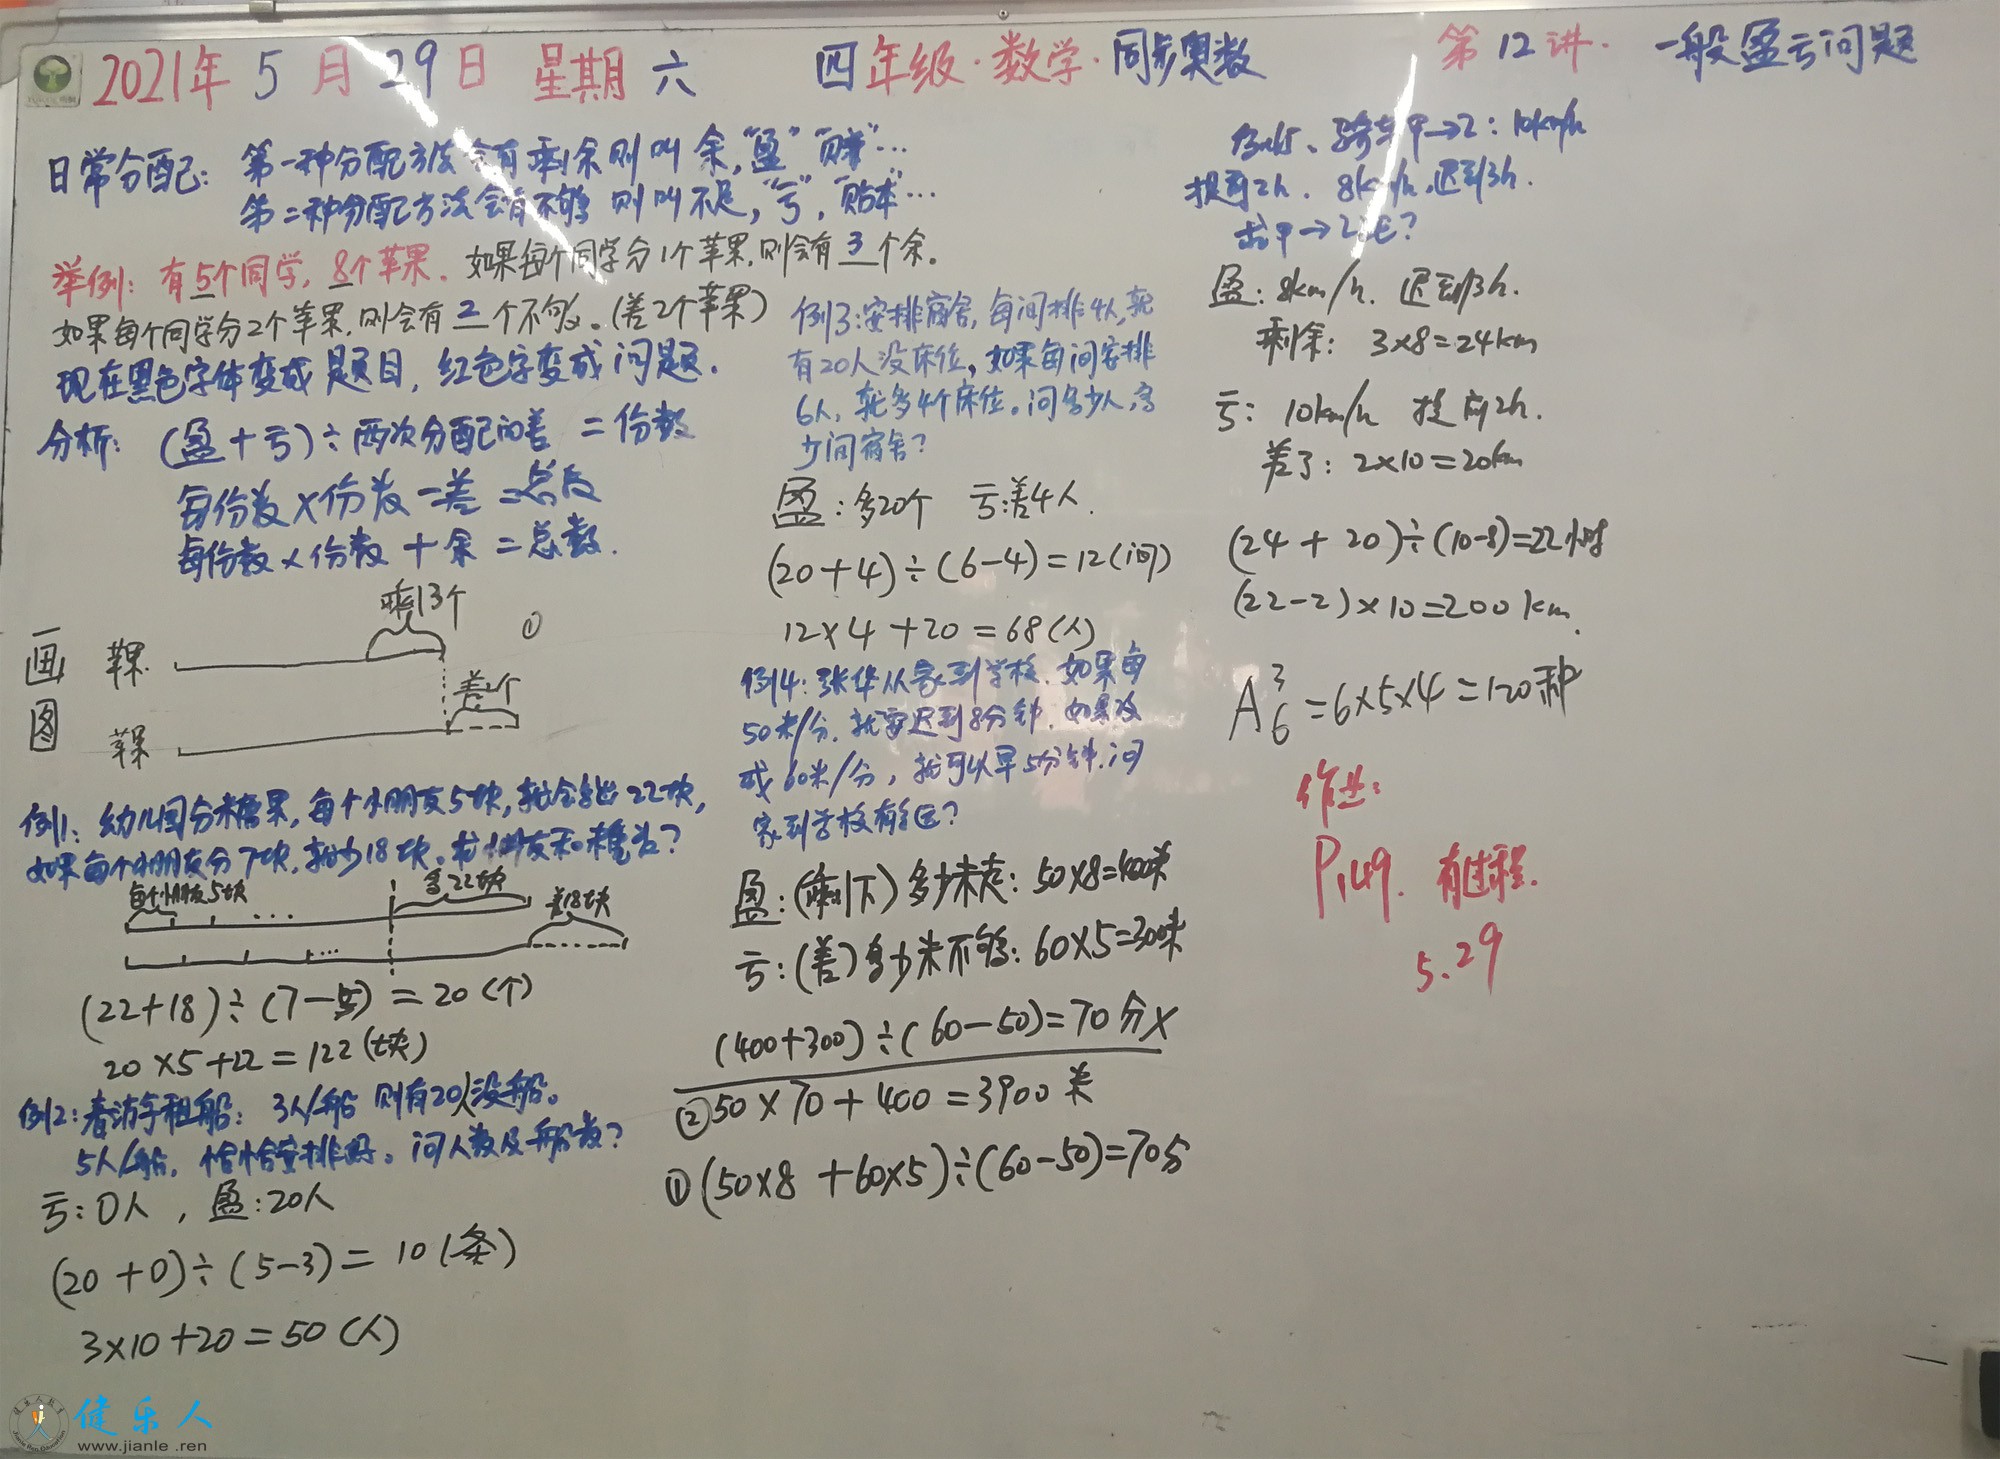 2021年 5月 29日 星期六 四年级·数学·同步奥数 第12讲· 一般盈亏问题
日常分配: 第一种分配方法会有剩余则叫余,"盈""赚"…
第二种分配方法会有不够 则叫不足,"亏","贴本"…
举例: 有5个同学, 8个苹果. 如果每个同学分1个苹果,则会有3个余。
如果每个同学分2个苹果,则会有2个不够。(差2个苹果)
现在黑色字体变成题目, 红色字变成问题.
分析: (盈+亏)÷两次分配的差 =份数
每份数×份数-差=总数
每份数×份数+余=总数.
剩3个
①
画图
苹果
差2个
苹果
例1: 幼儿园分糖果,每个小朋友5块,就会多出22块,
如果每个小朋友分7块,就少18块。求小朋友和糖各?
每个小朋友5块 … 多22块 差18块
…
(22+18)÷(7-5)=20(个)
20×5+22=122(块)
例2:春游学租船: 3人/船 则有20人没船。
5人/船, 恰恰安排好。问人数及船数?
亏:0人, 盈:20人
(20+0)÷(5-3)=10(条)
3×10+20=50(人)
例3:安排宿舍,每间排4人,就
有20人没床位,如果每间安排
6人,就多4个床位。问多少人,多
少间宿舍?
盈:多20个 亏:差4人.
(20+4)÷(6-4)=12(间)
12×4+20=68(人)
例4:张华从家到学校.如果每
50米/分.就要迟到8分钟.如果改
成60米/分,就可以早5分钟.问
家到学校有多远?
盈:(剩下)多少未走:50×8=400米
亏:(差)多少米不够:60×5=300米
(400+300)÷(60-50)=70分×
②50×70+400=3900米
①(50×8+60×5)÷(60-50)=70分
骑车甲→乙:10km/h
提到2h. 8km/h,迟到3h.
求甲→乙距?
盈:8km/h. 迟到3h.
剩余: 3×8=24km
亏: 10km/h 提前2h.
差了: 2×10=20km
(24+20)÷(10-8)=22小时
(22-2)×10=200km.
A³₆=6×5×4=120种
作业:
P149. 有过程.
5.29
健乐人
www.jianle.ren